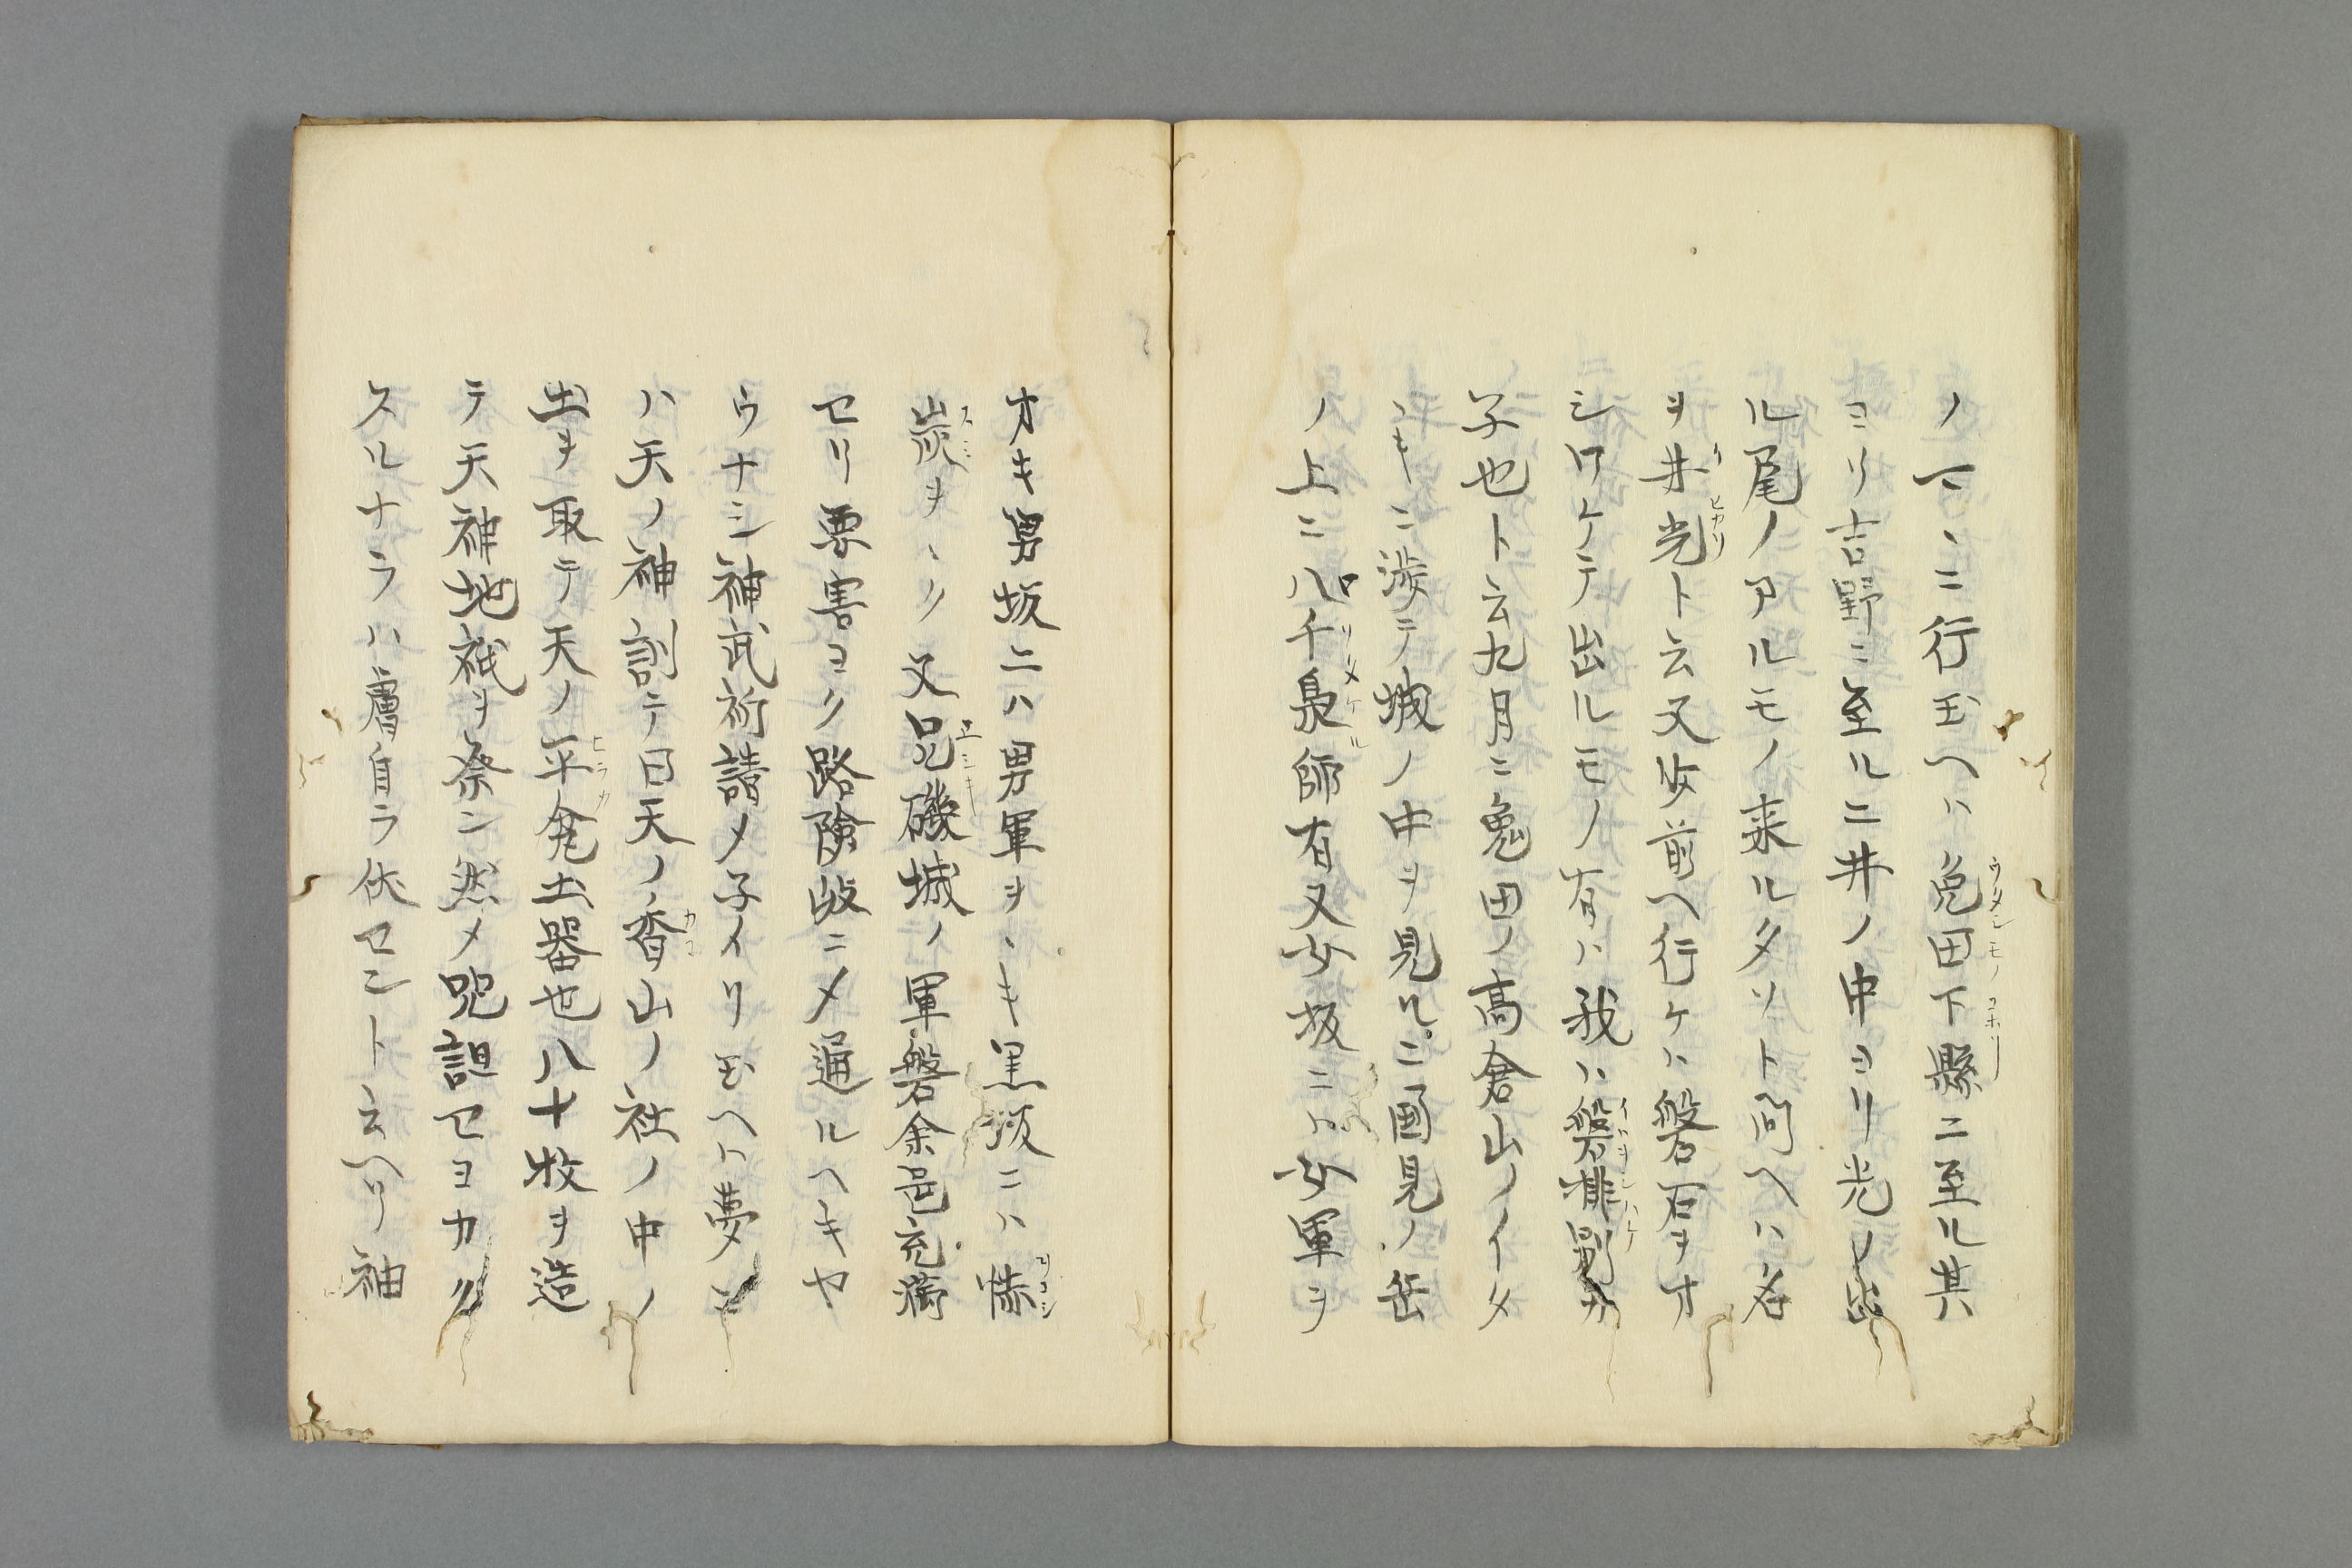 ノマヽニ行玉ヘハ菟田下縣ニ至ル其
ヨリ吉野ニ至ルニ井ノ中ヨリ光レ
ル尾ノアルモノ来ルタソト問ヘハ答
ヲ井光ト云又少シ前ヘ行ケハ磐石ヲオ
シワケテ出ルモノ有ハ我ハ磐排別カ
子也ト云九月ニ菟田ノ高倉山ノイタ
ヽキニ渉テ城ノ中ヲ見ルニ國見ノ岳
ノ上ニハ八十梟師有又女坂ニハ女軍ヲ
オキ男坂ニハ男軍ヲヽキ黒坂ニハ
炭ヲヽク又兄磯城ノ軍磐余邑充満
セリ要害ヨク路険敵ニメ通ルヘキカ
ウナシ神武祈請メ子入リ玉ヘケ夢
ハ天ノ神訓テ曰天ノ香山ノ社ノ中ノ
土ヲ取テ天ノ平瓮土器也八十枚ヲ造
テ天神地祇ヲ祭シ然メ呪詛セヨカク
スルナラハ虜自ラ伏セントノ玉ヘリ神